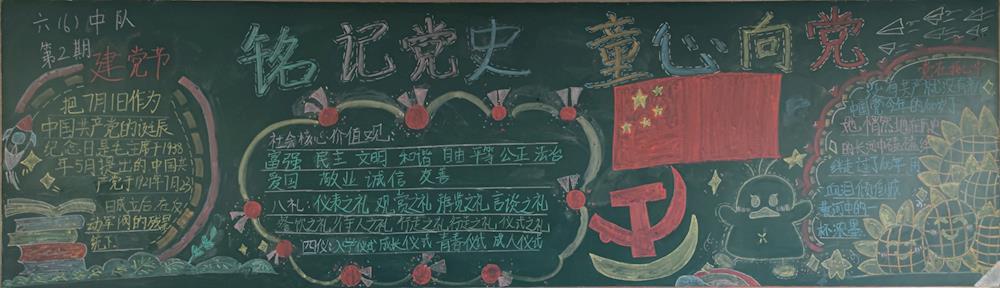 六(6)中队
第2期
铭记党史 童心向党
建党节
把7月1日作为
中国共产党的诞辰
纪念日是毛主席于1938
年5月提出的中国共
产党于1921年7月23
日成立后在反
动军阀的残暴
统下
社会核心价值观:
富强 民主 文明 和谐 自由 平等 公正 法治
爱国 敬业 诚信 友善
八礼:仪表之礼 观赏之礼 游览之礼 言谈之礼
餐饮之礼 待人之礼 行走之礼 行走之礼 仪式之礼
四仪:入学仪式 成长仪式 青春仪式 成人仪式
没有共产党就没有新
的长河中
走过了
血泪
黄河中的